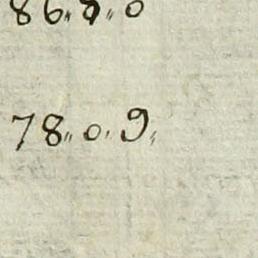 86,, 8,, 0
78,, 0, 9,